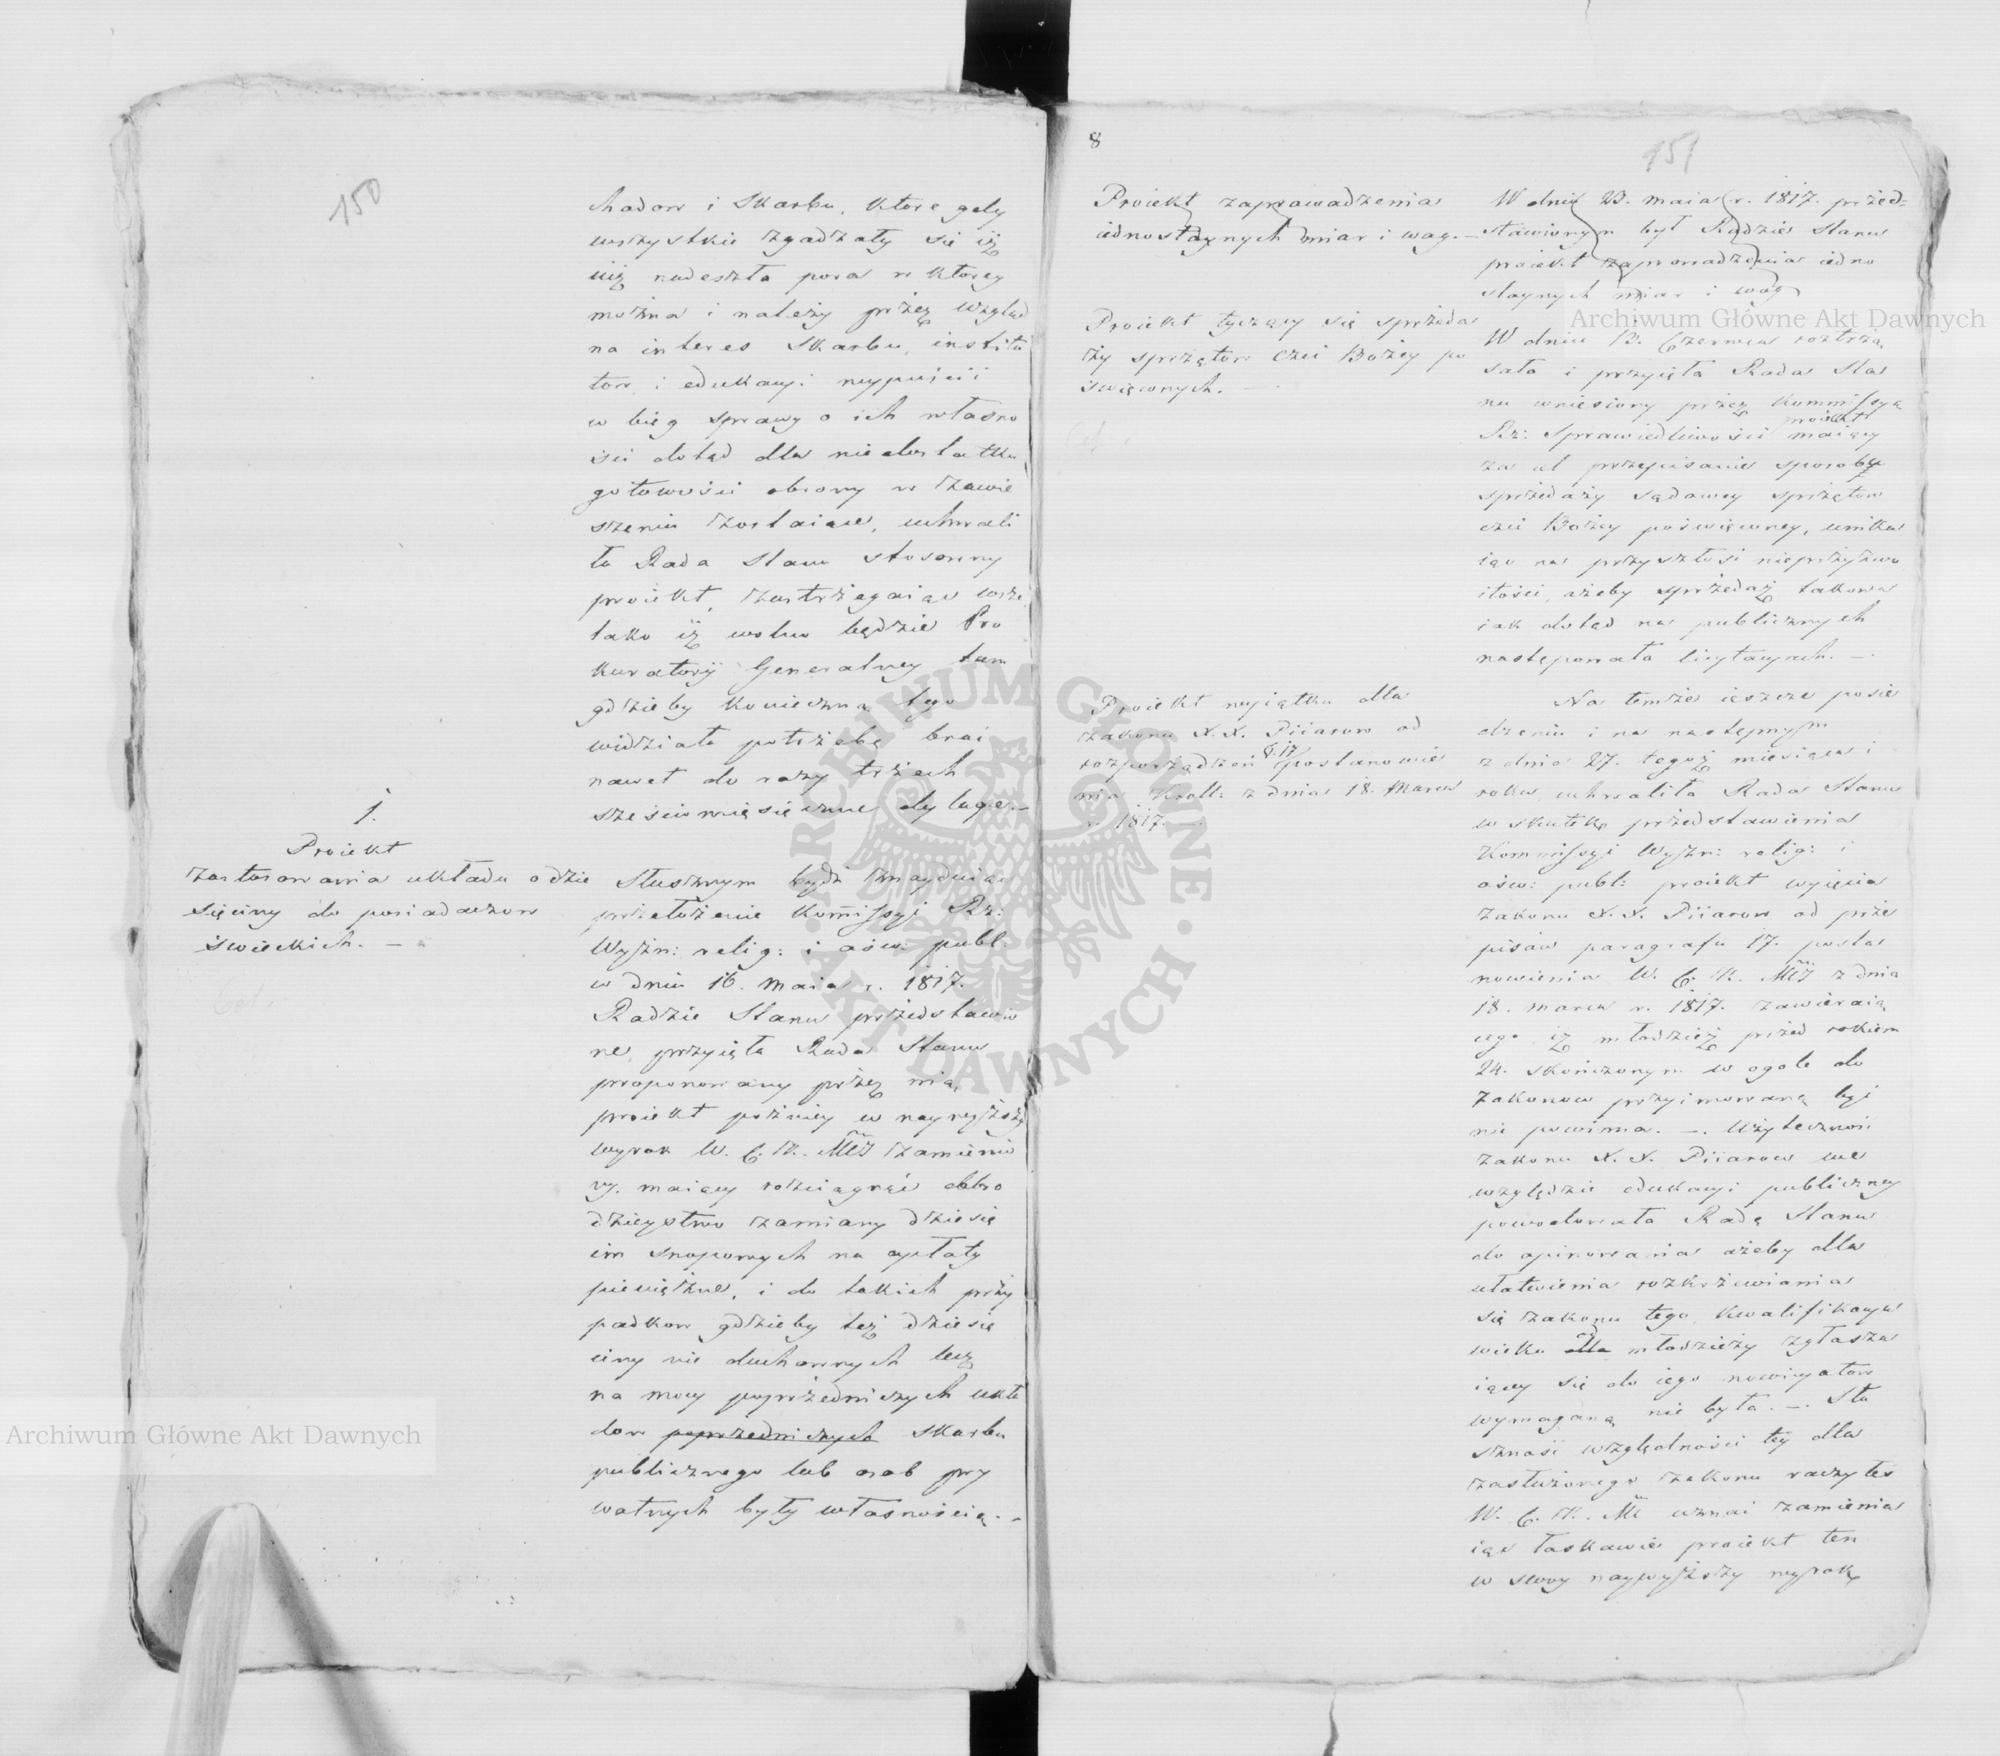 150
chodow i Skarbu, ktore gdy
wszystkie zgadzały się iż
iuż nadeszła pora w ktorey
można i należy przez wzgląd
na interes Skarbu, institu
tow i edukacyi wypuścić
w bieg sprawy o ich własno
ści dotąd dla niedostatku
gotowości obrony w zawie
szeniu zostaiące, uchwali
ła Rada Stanu stosowny
proiekt, zastrzegaiąc wsze
lako iż wolno będzie Pro
kuratoryi Generalney tam
gdzieby konieczną tego
widziała potrzebę brać
nawet do razy trzech
sześciomiesięczne dylacye. —
j.
Proiekt
zastosowania układu o dzie
sięciny do posiadaczow
świeckich. —
Słusznym bydź znayduiąc
przełożenie Kommissyi Rz:
Wyzn: relig: i ośw: publ:
w dniu 16. Maia r. 1817.
Radzie Stanu przedstawio
ne, przyięła Rada Stanu
proponowany przez nią
proiekt pożniey w naywyższy
wyrok W. C. K. Mci zamienio
ny, maiący rozciągnąć dobro
dzieystwo zamiany dziesię
cin snopowych na opłaty
pieniężne, i do takich przy
padkow gdzieby też dziesię
ciny nie duchownych lecz
na mocy poprzedniczych ukła
dow poprzedniczych Skarbu
publicznego lub osob pry
watnych były własnością. —
8
151
Proiekt zaprowadzenia
iednostaynych miar i wag. —
W dniu 23. maia r. 1817. przed=
stawionym był Radzie Stanu
proiekt zaprowadzenia iedno
staynych miar i wag
Proiekt tyczący się sprzeda
ży sprzętow czci Bożey po
święconych. —
W dniu 13. Czerwca roztrzą
sała i przyięła Rada Sta
nu wniesiony przez Kommissyą
Rz: Sprawiedliwości proiekt maiący
za cel przepisanie sposobu
sprzedaży sądowey sprzętow
czci Bożey poświęconey, unika
iąc na przyszłość nieprzyzwo
itości, ażeby sprzedaż takowa
iak dotąd na publicznych
następowała licytacyach. —
Proiekt wyiątku dla
zakonu X. X. Piiarow od
rozporządzeń § 17 postanowie
nia Krolł: z dnia 18. Marca
r. 1817. —
Na temże ieszcze posie
dzeniu i na następnym
z dnia 27. tegoż miesiąca i
roku uchwaliła Rada Stanu
w skutek przedstawienia
Kommissyi Wyzn: relig: i
ośw: publ: proiekt wyięcia
zakonu X. X. Piiarow od prze
pisow paragrafu 17. posta
nowienia W. C. K. Mci z dnia
18. marca r. 1817. zawieraią
cego iż młodzież przed rokiem
24. skończonym w ogole do
zakonow przyimowaną być
nie powinna. —. Użyteczność
zakonu X. X. Piiarow we
względzie edukacyi publiczney
powodowała Radę Stanu
do opinowania ażeby dla
ułatwienia rozkrzewiania
się zakonu tego, kwalifikacya
wieku dla od młodzieży zgłasza
iącey się do iego nowicyatow
wymaganą nie była. —. Słu
szność względności tey dla
zasłużonego zakonu raczyłeś
W. C. K. Mć uznać zamienia
iąc łaskawie proiekt ten
w swoy naywyższy wyrok
Archiwum Główne Akt Dawnych
Archiwum Główne Akt Dawnych
ARCHIWUM GŁÓWNE · AKT DAWNYCH ·